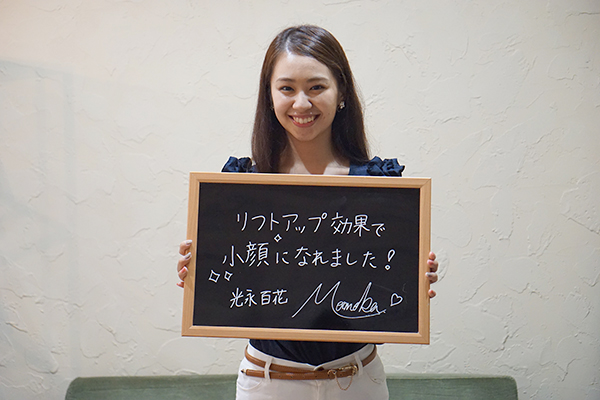 リフトアップ効果で
小顔になれました!
光永百花 Momoka